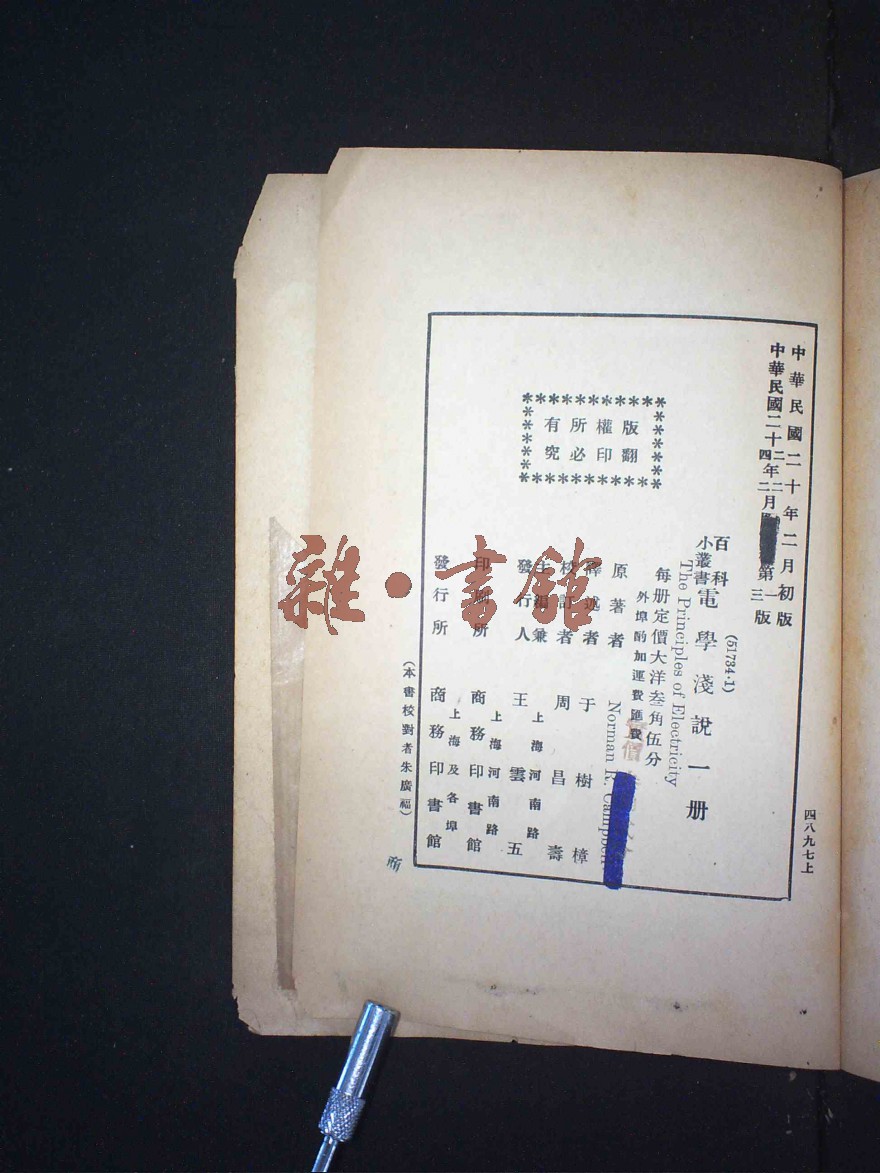 四八九七上
中華民國二十年二月初版
中華民國二十二年二月第一版
四年二月三版
百科
小叢書
電學淺說一册
(51734·1)
The Principles of Electricity
每册定價大洋叁角伍分
外埠酌加運費匯費
原著者 Norman R. Campbell
譯述者 于樹樟
校訂者 周昌壽
主編兼發行人 上海河南路 王雲五
印刷所 上海河南路 商務印書館
發行所 上海及各埠 商務印書館
(本書校對者朱廣福)
版權所有
翻印必究
雜·書館